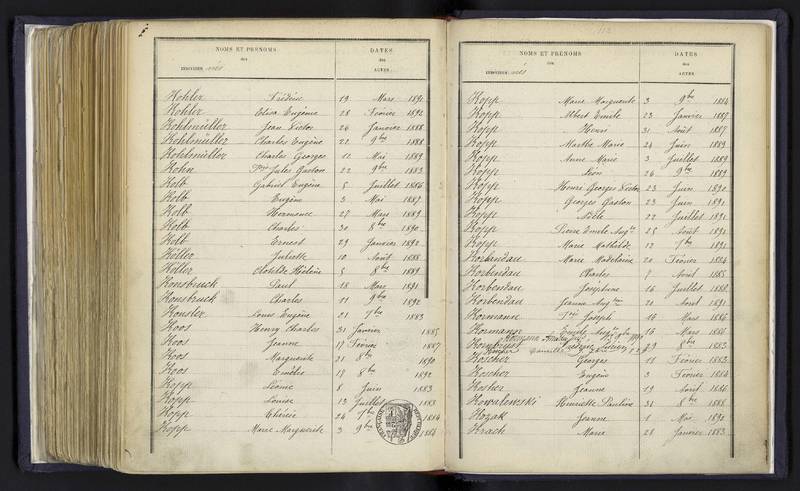 NOMS ET PRÉNOMS
des
INDIVIDUS nés
DATES
des
ACTES
Kohler Frédéric 19 Mars 1891
Kohler Elisa Eugénie 28 Février 1892
Kohlmüller Jean Victor 26 Janvier 1888
Kohlmüller Charles Eugène 22 9bre 1888
Kohlmüller Charles Georges 12 Mai 1889
Kohn Jules Gaston 22 9bre 1883
Kolb Gabriel Eugène 5 Juillet 1886
Kolb Eugène 3 Mai 1887
Kolb Hermance 27 Mars 1889
Kolb Charles 30 8bre 1890
Kolb Ernest 29 Janvier 1892
Koller Juliette 10 Août 1888
Koller Clotilde Hélène 5 8bre 1889
Konsbruck Paul 18 Mars 1891
Konsbruck Charles 11 9bre 1892
Konsler Louis Eugène 21 7bre 1883
Koos Henry Charles 31 Janvier 1885
Koos Jeanne 17 Février 1887
Koos Marguerite 21 8bre 1890
Koos Emélie 17 8bre 1892
Kopp Léonie 8 Juin 1883
Kopp Louise 13 Juillet 1883
Kopp Thérèse 24 7bre 1884
Kopp Marie Marguerite 3 9bre 1884
112
NOMS ET PRÉNOMS
des
INDIVIDUS nés
DATES
des
ACTES
Kopp Marie Marguerite 3 9bre 1884
Kopp Albert Emile 23 Janvier 1887
Kopp Henri 31 Août 1887
Kopp Marthe Marie 24 Juin 1889
Kopp Anne Marie 3 Juillet 1889
Kopp Léon 26 9bre 1889
Kopp Henri Georges Victor 23 Juin 1890
Kopp Georges Gaston 23 Juin 1891
Kopp Adèle 22 Juillet 1891
Kopp Pierre Emile Augte 25 Août 1891
Kopp Marie Mathilde 12 7bre 1891
Korbendau Marie Madeleine 20 Février 1884
Korbendau Charles 7 Avril 1885
Korbendau Joséphine 16 Juillet 1888
Korbendau Jeanne Augtine 21 Avril 1891
Kormann Joseph 16 Mars 1886
Kormann Emile 16 Mars 1886
Kormann 1890
29 8bre 1883
Koscher Georges 11 Février 1883
Koscher Eugène 3 Février 1884
Kosher Jeanne 19 Avril 1886
Kowalewski Henriette Pauline 31 8bre 1888
Kozak Jeanne 1 Mai 1892
Krach Marie 28 Janvier 1883